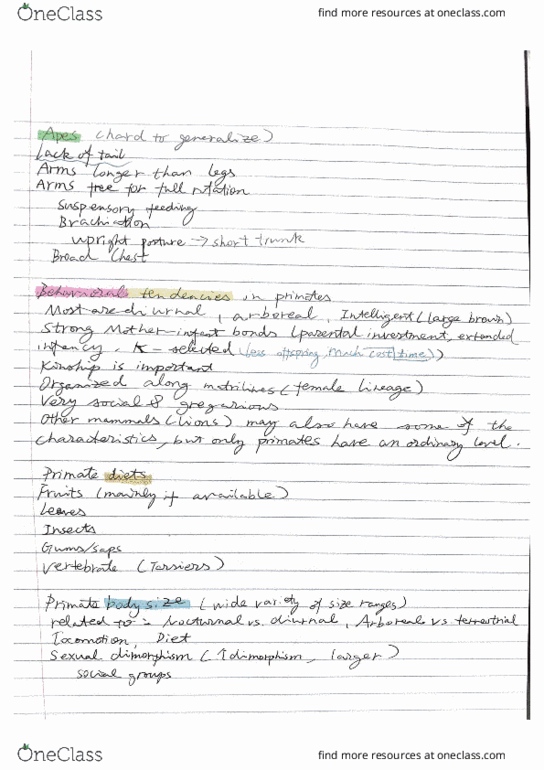 OneClass
find more resources at oneclass.com
Apes (hard to generalize)
Lack of tail
Arms longer than legs
Arms free for full rotation
Suspensory feeding
Brachiation
upright posture → short trunk
Broad Chest
Behavioral tendencies in primates
Most are diurnal, arboreal, Intelligent (large brown)
Strong Mother-infant bonds (parental investment, extended
infancy. K-selected (less offspring, Much cost, time))
Kinship is important
Organized along matrilines (female lineage)
Very social & gregarious
Other mammals (lions) may also have some of the
characteristics, but only primates have an ordinary level.
Primate diets
Fruits (mainly if available)
Leaves
Insects
Gums/saps
Vertebrate (Tarsiers)
Primate body size (wide variety of size ranges)
related to: Nocturnal vs. diurnal, Arboreal vs terrestrial
Locomotion, Diet
Sexual dimorphism (↑dimorphism, larger)
social groups
OneClass
find more resources at oneclass.com